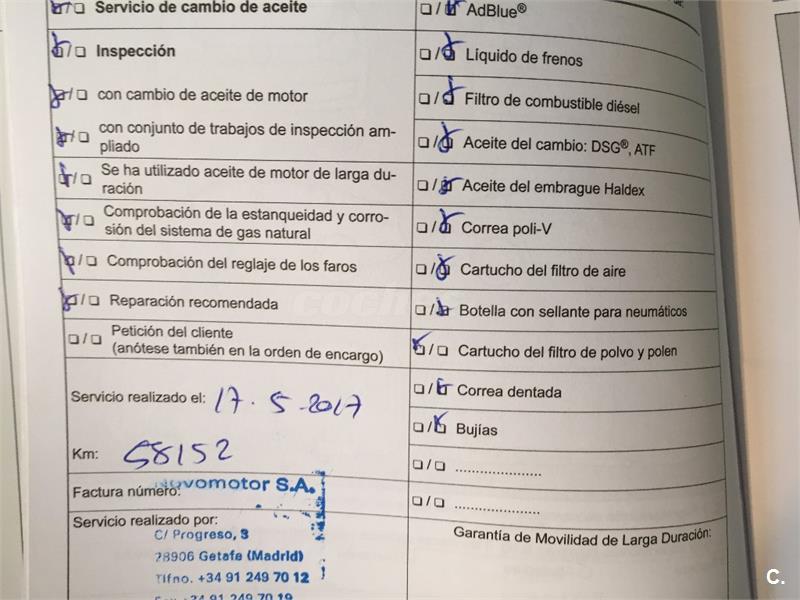 Servicio de cambio de aceite
Inspección
con cambio de aceite de motor
con conjunto de trabajos de inspección am-
pliado
Se ha utilizado aceite de motor de larga du-
ración
Comprobación de la estanqueidad y corro-
sión del sistema de gas natural
Comprobación del reglaje de los faros
Reparación recomendada
Petición del cliente
(anótese también en la orden de encargo)
Servicio realizado el: 17.5.2017
Km: 58152
Factura número:
Novomotor S.A.
Servicio realizado por:
C/ Progreso, 3
28906 Getafe (Madrid)
Tlfno. +34 91 249 70 12
Fax +34 91 249 70 19
AdBlue®
Líquido de frenos
Filtro de combustible diésel
Aceite del cambio: DSG®, ATF
Aceite del embrague Haldex
Correa poli-V
Cartucho del filtro de aire
Botella con sellante para neumáticos
Cartucho del filtro de polvo y polen
Correa dentada
Bujías
.....................
.....................
Garantía de Movilidad de Larga Duración:
coches
C.